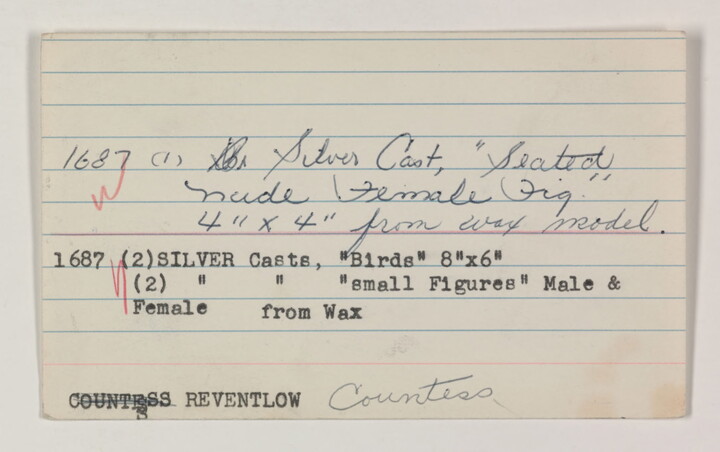 1687 (1) Silver Cast, "Seated
nude Female Fig."
4" x 4" from wax model.
1687 (2)SILVER Casts, "Birds" 8"x6"
(2) " " "small Figures" Male &
Female from Wax
COUNTESS REVENTLOW Countess